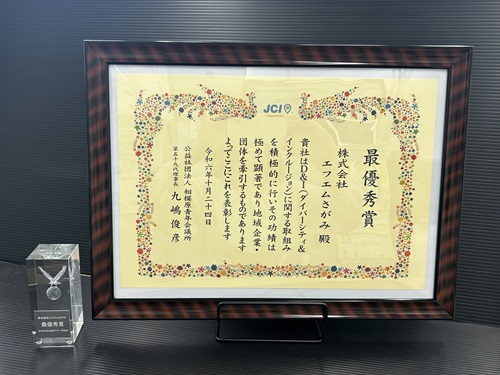 JCI
最優秀賞
株式会社
エフエムさがみ 殿
貴社はD&I(ダイバーシティ&
インクルージョン)に関する取組み
を積極的に行いその功績は
極めて顕著であり地域企業・
団体を牽引するものであります
よってここにこれを表彰します
令和六年十月二十四日
公益社団法人 相模原青年会議所
第五十九代理事長 九嶋俊彦
最優秀賞